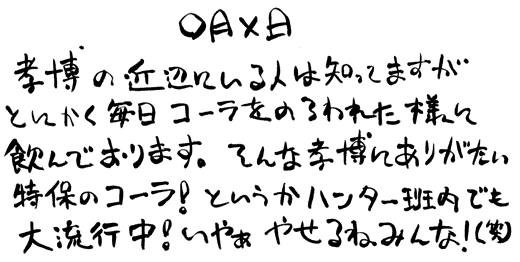 ○月×日
孝博の近辺にいる人は知ってますが
とにかく毎日コーラをのろわれた様に
飲んでおります。そんな孝博にありがたい
特保のコーラ!というかハンター班内でも
大流行中!いやぁやせるね、みんな!(笑)